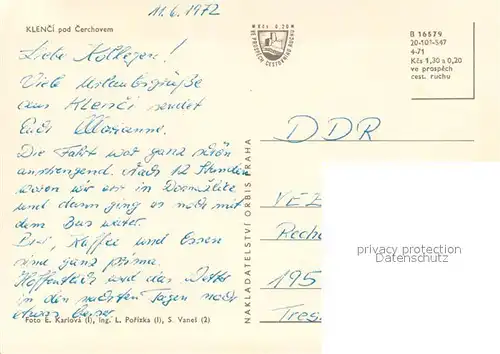 11.6.1972
KLENČÍ pod Čerchovem
Kčs 0,20
VE PROSPĚCH CESTOVNÍHO RUCHU
B 16579
20-101-547
4-71
Kčs 1,30 s 0,20
ve prospěch
cest. ruchu
Liebe Kollegen!
Viele Urlaubsgrüße
aus Klenči sendet
Euch Marianne.
Die Fahrt war ganz schön
anstrengend. Nach 12 Stunden
waren wir erst in Domažlice
und dann ging es noch mit
dem Bus weiter.
Bier, Kaffee und Essen
sind ganz prima.
Hoffentlich wird das Wetter
in den nächsten Tagen noch
etwas besser.
Foto E. Karlová (1), Ing. L. Pořízka (1), S. Vaněl (2)
NAKLADATELSTVÍ ORBIS PRAHA
DDR
VEB
Reche
195
Tres
privacy protection
ansichtskarten-lexikon.de